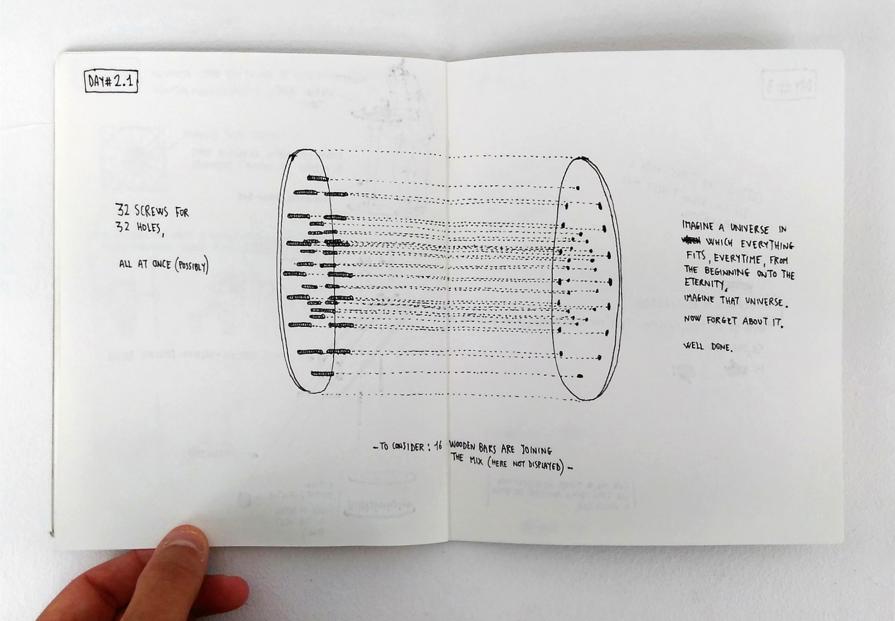 DAY#2.1
32 SCREWS FOR
32 HOLES,
ALL AT ONCE (POSSIBLY)
IMAGINE A UNIVERSE IN
WHICH EVERYTHING
FITS, EVERYTIME, FROM
THE BEGINNING ONTO THE
ETERNITY.
IMAGINE THAT UNIVERSE.
NOW FORGET ABOUT IT.
WELL DONE.
-TO CONSIDER: 16 WOODEN BARS ARE JOINING
THE MIX (HERE NOT DISPLAYED)-